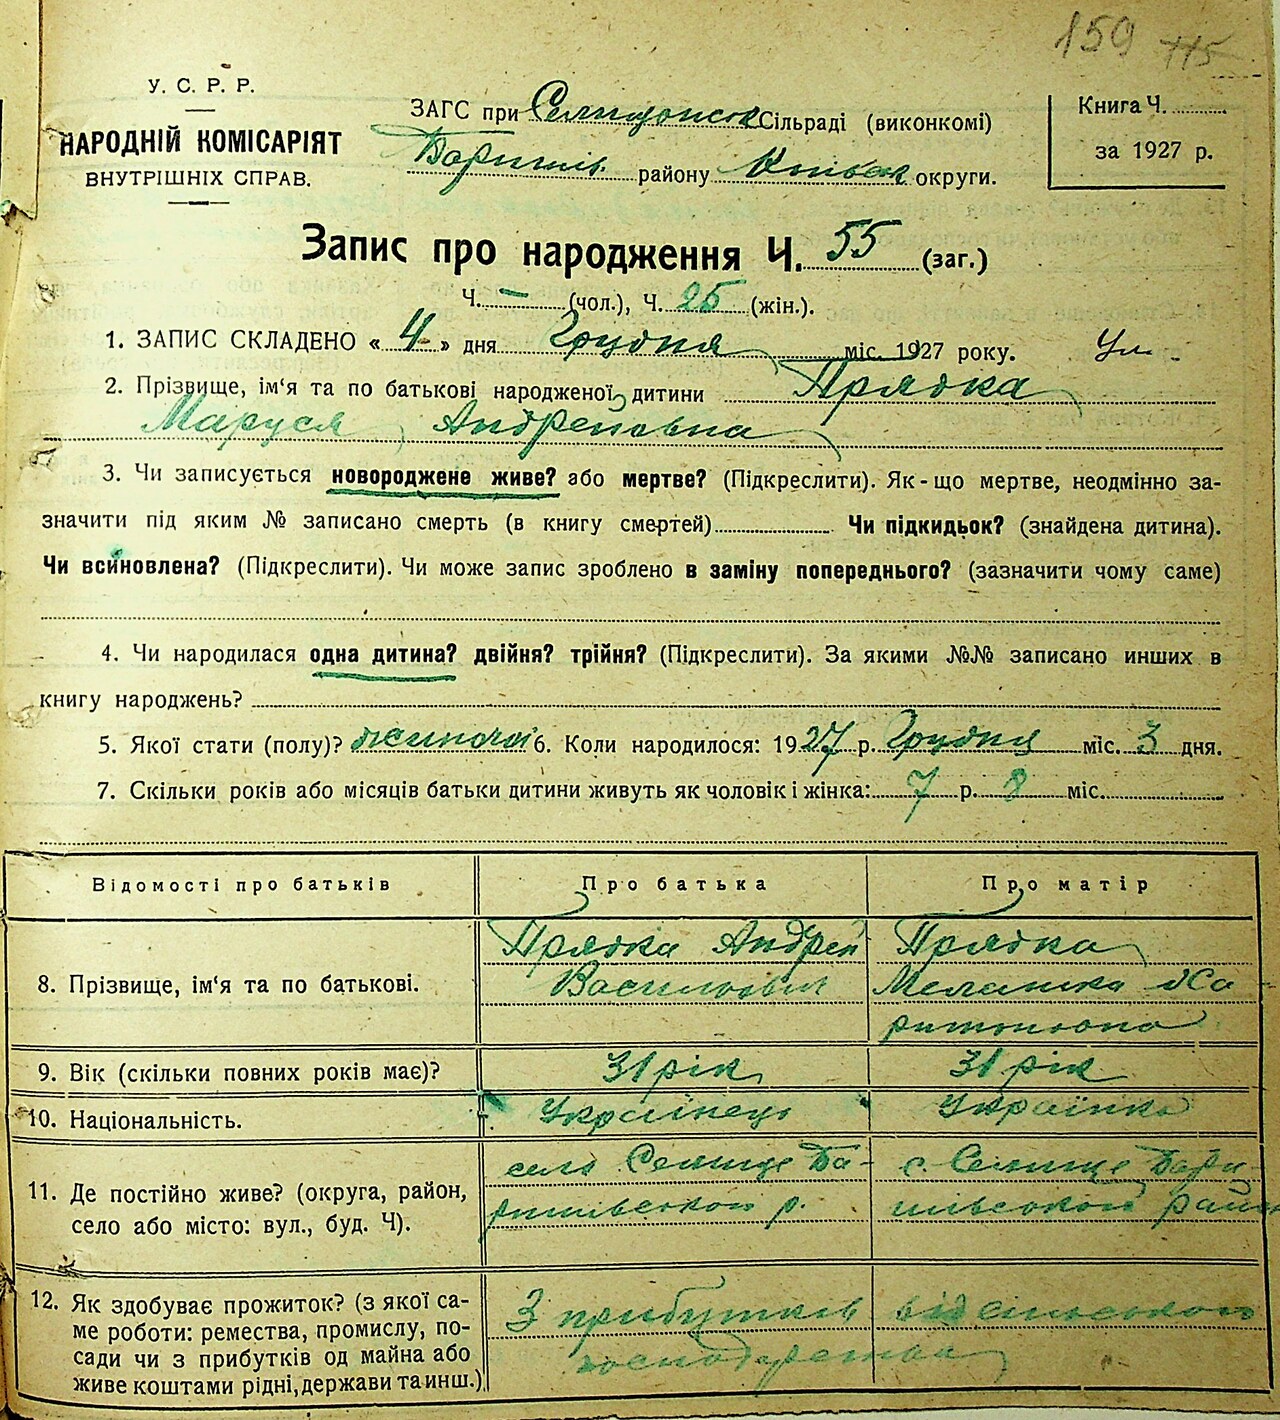 159 115
У. С. Р. Р.
НАРОДНІЙ КОМІСАРІЯТ
ВНУТРІШНІХ СПРАВ.
ЗАГС при Сільраді (виконкомі)
Баришів. району Київськ округи.
Книга Ч.
за 1927 р.
Запис про народження Ч. 55 (заг.)
Ч. — (чол.), Ч. 25 (жін.).
1. ЗАПИС СКЛАДЕНО « 4 » дня Грудня міс. 1927 року.
2. Прізвище, ім‘я та по батькові народженої дитини Прядка
Маруся Андреповна
3. Чи записується новороджене живе? або мертве? (Підкреслити). Як-що мертве, неодмінно за-
значити під яким № записано смерть (в книгу смертей) Чи підкидьок? (знайдена дитина).
Чи всиновлена? (Підкреслити). Чи може запис зроблено в заміну попереднього? (зазначити чому саме)
4. Чи народилася одна дитина? двійня? трійня? (Підкреслити). За якими №№ записано инших в
книгу народжень?
5. Якої стати (полу)? жиночої 6. Коли народилося: 1927 р. Грудня міс. 3 дня.
7. Скільки років або місяців батьки дитини живуть як чоловік і жінка: 7 р. 8 міс.
Відомості про батьків Про батька Про матір
8. Прізвище, ім‘я та по батькові.
Прядка Андрей
Васильович
Прядка
Меланка Ха
ритоновна
9. Вік (скільки повних років має)? 31 рік 31 рік
10. Національність. Українець Українка
11. Де постійно живе? (округа, район,
село або місто: вул., буд. Ч).
село Селище Ба-
ришівського р.
с. Селище Бари-
шівського район
12. Як здобуває прожиток? (з якої са-
ме роботи: ремества, промислу, по-
сади чи з прибутків од майна або
живе коштами рідні, держави та инш.)
З прибутків від сільського
господарства